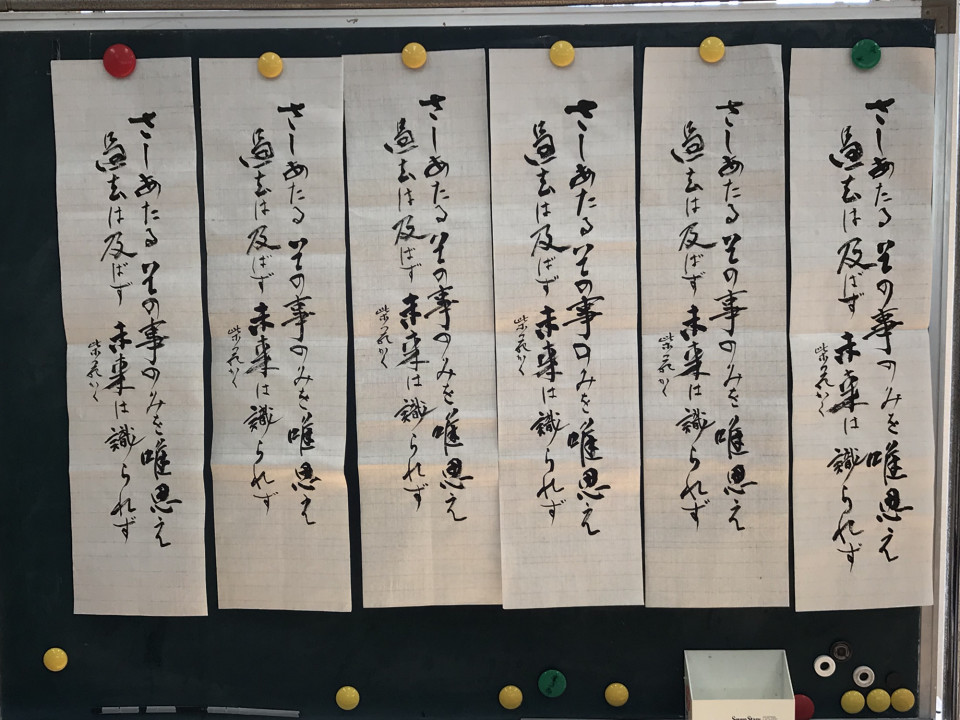 さしあたるその事のみを唯思え
過去は及ばず未来は識られず
さしあたるその事のみを唯思え
過去は及ばず未来は識られず
さしあたるその事のみを唯思え
過去は及ばず未来は識られず
さしあたるその事のみを唯思え
過去は及ばず未来は識られず
さしあたるその事のみを唯思え
過去は及ばず未来は識られず
さしあたるその事のみを唯思え
過去は及ばず未来は識られず